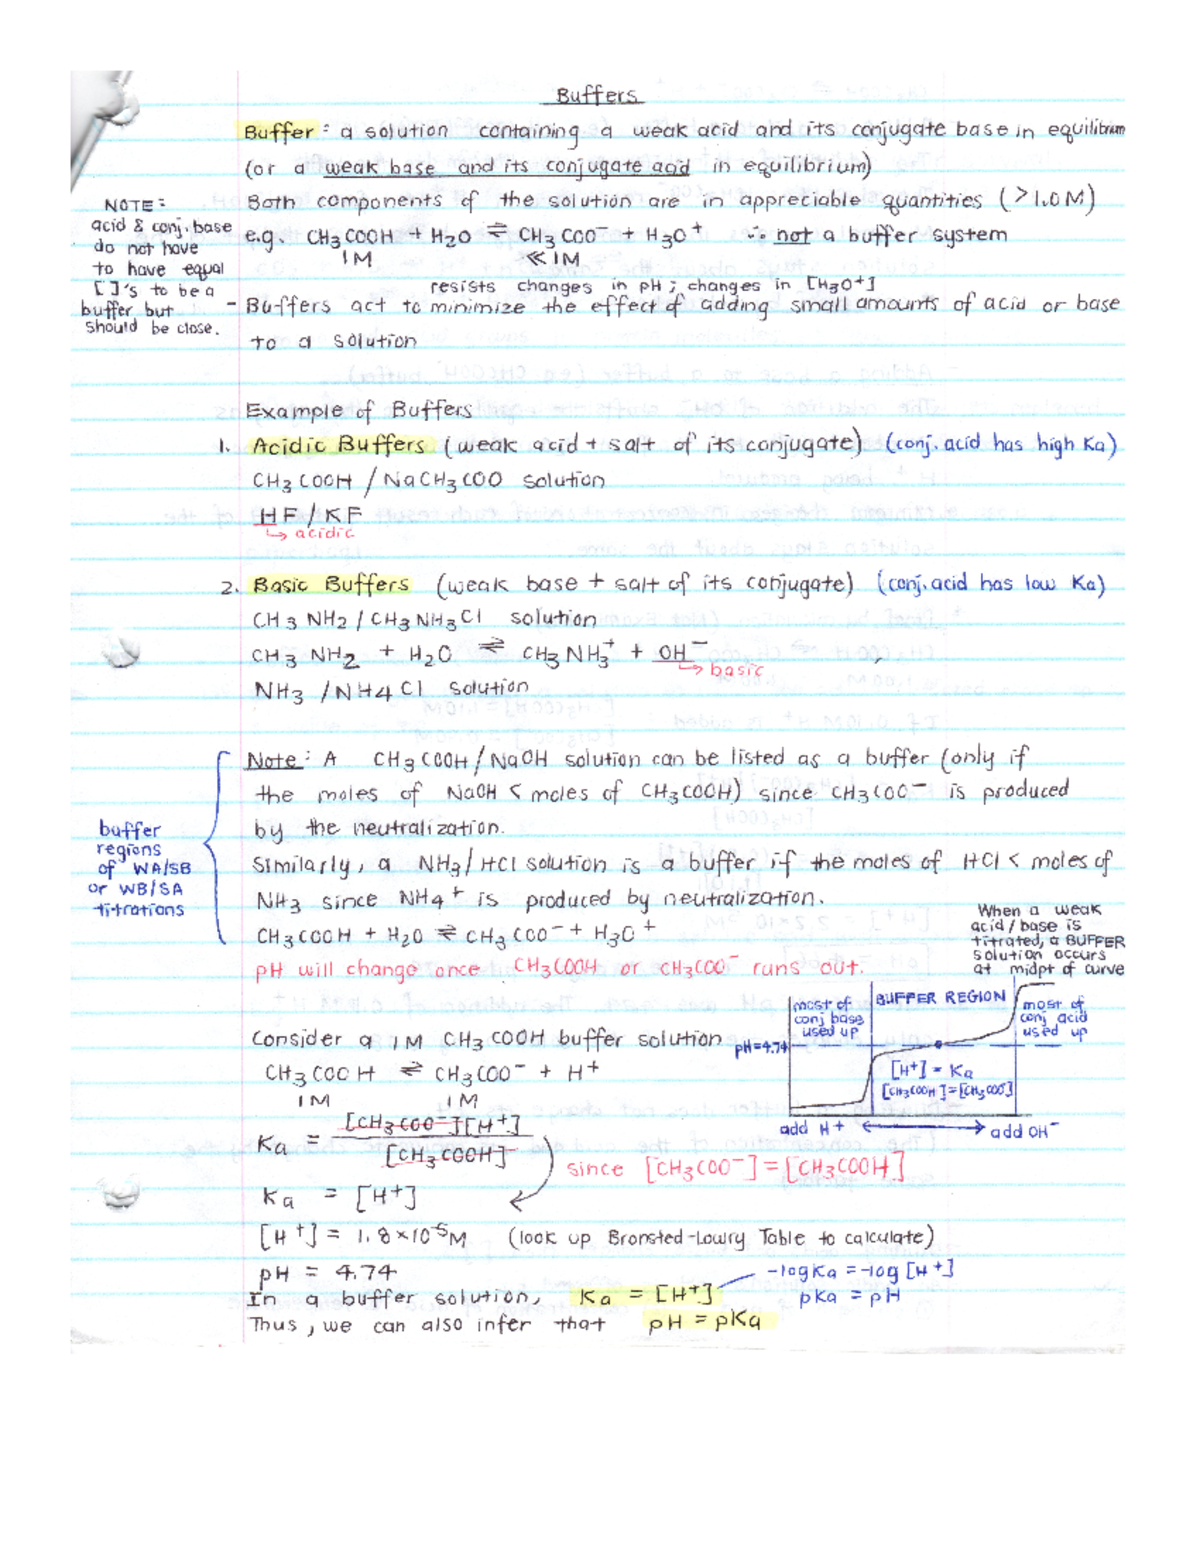 Buffers
Buffer : a solution containing a weak acid and its conjugate base in equilibrium
(or a weak base and its conjugate acid in equilibrium)
NOTE:
acid & conj. base
do not have
to have equal
[ ]'s to be a
buffer but
should be close.
Both components of the solution are in appreciable quantities (>1.0M)
e.g. CH3COOH + H2O ⇌ CH3COO⁻ + H3O⁺ ∴ not a buffer system
1M ≪1M
resists changes in pH ; changes in [H3O+]
- Buffers act to minimize the effect of adding small amounts of acid or base
to a solution
Example of Buffers
1. Acidic Buffers (weak acid + salt of its conjugate) (conj. acid has high Ka)
CH3COOH / NaCH3COO solution
HF / KF
↳ acidic
2. Basic Buffers (weak base + salt of its conjugate) (conj. acid has low Ka)
CH3NH2 / CH3NH3Cl solution
CH3NH2 + H2O ⇌ CH3NH3⁺ + OH⁻
↳ basic
NH3 / NH4Cl solution
Note : A CH3COOH / NaOH solution can be listed as a buffer (only if
the moles of NaOH < moles of CH3COOH) since CH3COO⁻ is produced
by the neutralization.
Similarly, a NH3 / HCl solution is a buffer if the moles of HCl < moles of
NH3 since NH4⁺ is produced by neutralization.
CH3COOH + H2O ⇌ CH3COO⁻ + H3O⁺
pH will change once CH3COOH or CH3COO⁻ runs out.
buffer
regions
of WA/SB
or WB/SA
titrations
When a weak
acid/base is
titrated, a BUFFER
solution occurs
at midpt of curve
most of
conj base
used up
BUFFER REGION
most of
conj acid
used up
pH=4.74
[H+] = Ka
[CH3COOH]=[CH3COO⁻]
add H+ ⟷ add OH⁻
Consider a 1M CH3COOH buffer solution
CH3COOH ⇌ CH3COO⁻ + H+
1M 1M
Ka = [CH3COO⁻][H+]
[CH3COOH]
since [CH3COO⁻] = [CH3COOH]
Ka = [H+]
[H+] = 1.8×10⁻⁵M (look up Bronsted-Lowry Table to calculate)
pH = 4.74
In a buffer solution, Ka = [H+]
-logKa = -log[H+]
pKa = pH
Thus, we can also infer that pH = pKa